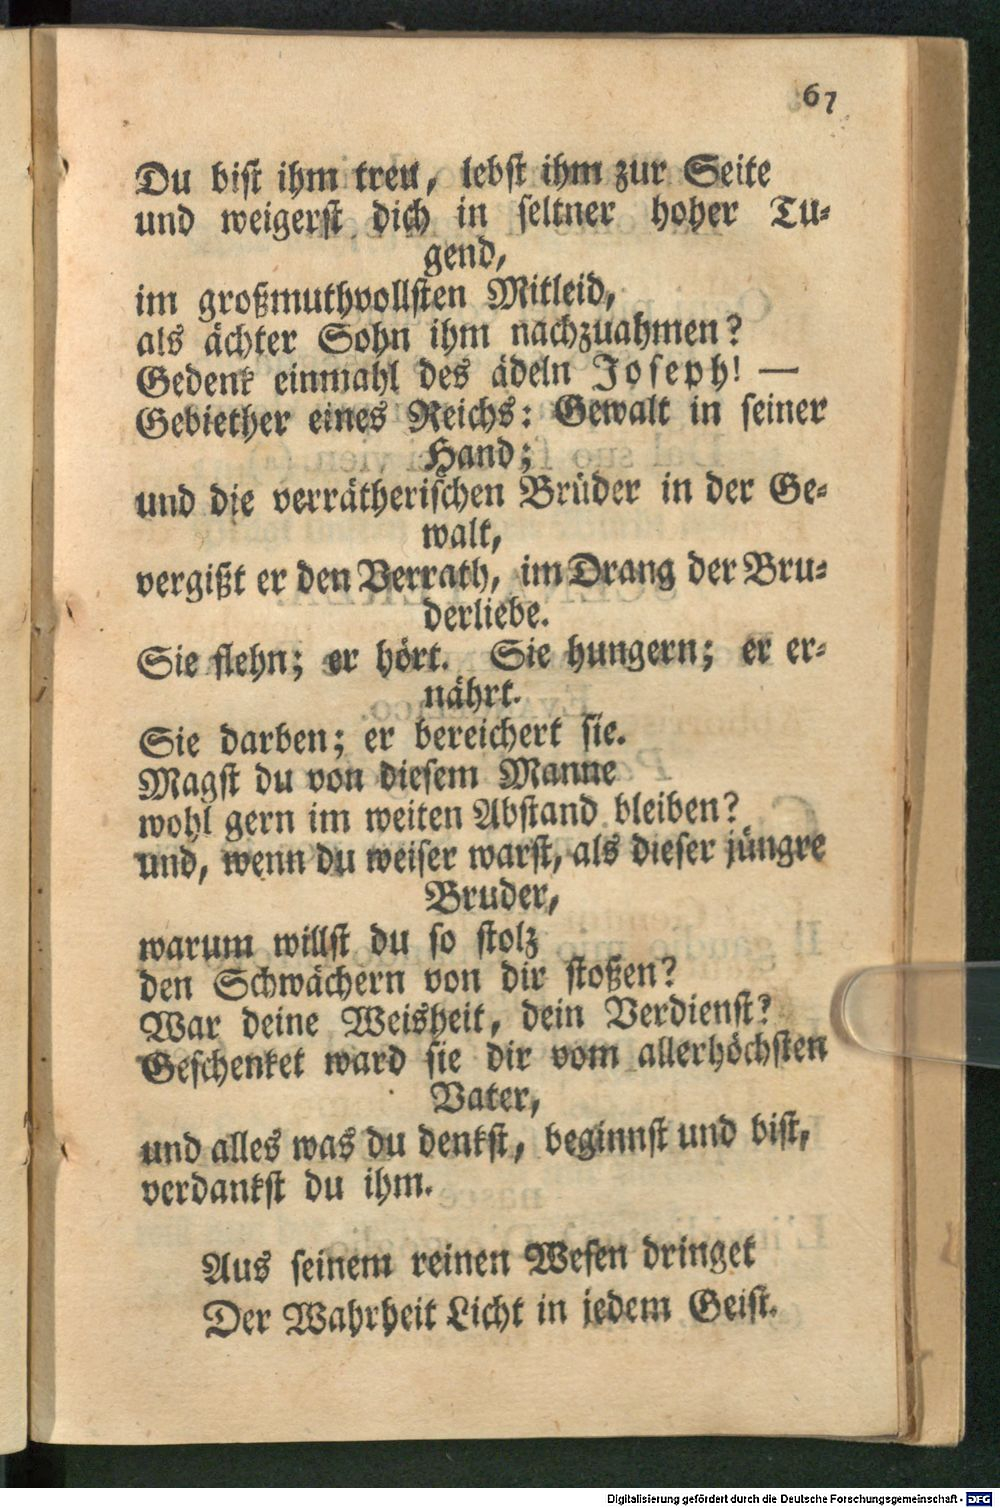 67
Du bist ihm treu, lebst ihm zur Seite
und weigerst dich in seltner hoher Tu-
gend,
im großmuthvollsten Mitleid,
als ächter Sohn ihm nachzuahmen?
Gedenk einmahl des ädeln Joseph! —
Gebiether eines Reichs: Gewalt in seiner
Hand;
und die verrätherischen Brüder in der Ge-
walt,
vergißt er den Verrath, im Drang der Bru-
derliebe.
Sie flehn; er hört. Sie hungern; er er-
nährt.
Sie darben; er bereichert sie.
Magst du von diesem Manne
wohl gern im weiten Abstand bleiben?
und, wenn du weiser warst, als dieser jüngre
Bruder,
warum willst du so stolz
den Schwächern von dir stoßen?
War deine Weisheit, dein Verdienst?
Geschenket ward sie dir vom allerhöchsten
Vater,
und alles was du denkst, beginnst und bist,
verdankst du ihm.
Aus seinem reinen Wesen dringet
Der Wahrheit Licht in jedem Geist.
Digitalisierung gefördert durch die Deutsche Forschungsgemeinschaft - DFG